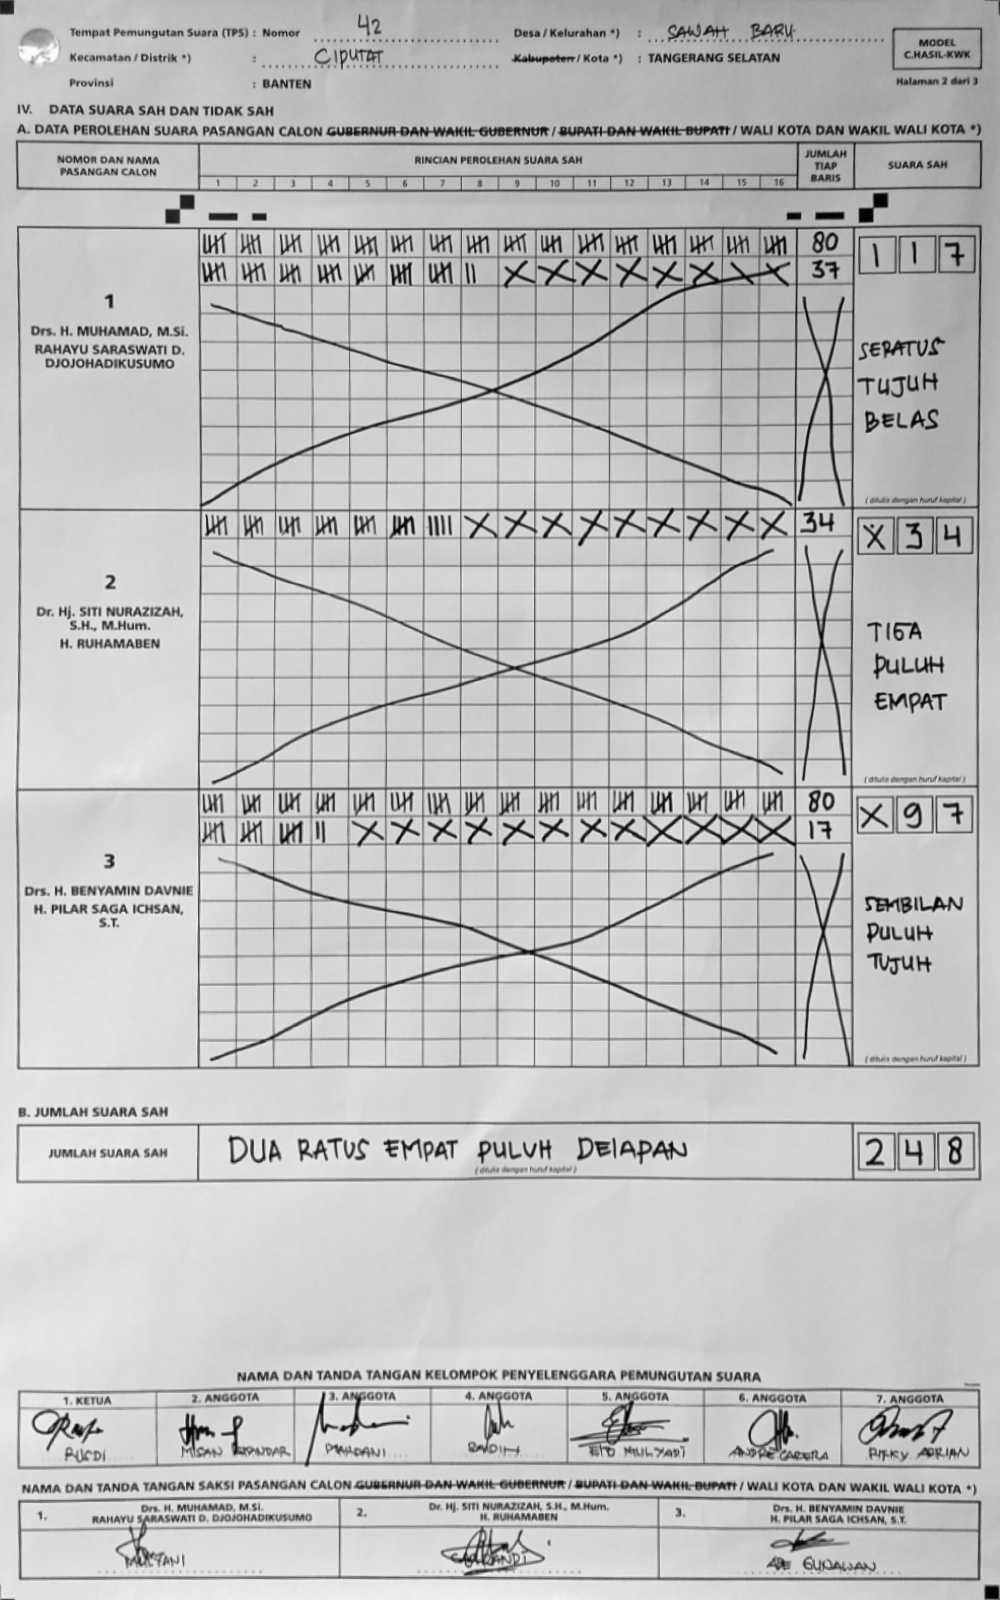 Tempat Pemungutan Suara (TPS) : Nomor 42 Desa / Kelurahan *) : SAWAH BARU
Kecamatan / Distrik *) : CIPUTAT Kabupaten / Kota *) : TANGERANG SELATAN
Provinsi : BANTEN
MODEL
C.HASIL-KWK
Halaman 2 dari 3
IV. DATA SUARA SAH DAN TIDAK SAH
A. DATA PEROLEHAN SUARA PASANGAN CALON GUBERNUR DAN WAKIL GUBERNUR / BUPATI DAN WAKIL BUPATI / WALI KOTA DAN WAKIL WALI KOTA *)
NOMOR DAN NAMA PASANGAN CALON
RINCIAN PEROLEHAN SUARA SAH
1 2 3 4 5 6 7 8 9 10 11 12 13 14 15 16
JUMLAH TIAP BARIS
SUARA SAH
1
Drs. H. MUHAMAD, M.Si.
RAHAYU SARASWATI D.
DJOJOHADIKUSUMO
80
37
1 1 7
SERATUS
TUJUH
BELAS
( ditulis dengan huruf kapital )
2
Dr. Hj. SITI NURAZIZAH,
S.H., M.Hum.
H. RUHAMABEN
34
X 3 4
TIGA
PULUH
EMPAT
( ditulis dengan huruf kapital )
3
Drs. H. BENYAMIN DAVNIE
H. PILAR SAGA ICHSAN,
S.T.
80
17
X 9 7
SEMBILAN
PULUH
TUJUH
( ditulis dengan huruf kapital )
B. JUMLAH SUARA SAH
JUMLAH SUARA SAH DUA RATUS EMPAT PULUH DELAPAN 2 4 8
( ditulis dengan huruf kapital )
NAMA DAN TANDA TANGAN KELOMPOK PENYELENGGARA PEMUNGUTAN SUARA
1. KETUA 2. ANGGOTA 3. ANGGOTA 4. ANGGOTA 5. ANGGOTA 6. ANGGOTA 7. ANGGOTA
RUSDI MISAN ISKANDAR MARDANI RAIDIH MULYADI ANDRE RIFKY ADRIAN
NAMA DAN TANDA TANGAN SAKSI PASANGAN CALON GUBERNUR DAN WAKIL GUBERNUR / BUPATI DAN WAKIL BUPATI / WALI KOTA DAN WAKIL WALI KOTA *)
1. Drs. H. MUHAMAD, M.Si.
RAHAYU SARASWATI D. DJOJOHADIKUSUMO
MULYANI
2. Dr. Hj. SITI NURAZIZAH, S.H., M.Hum.
H. RUHAMABEN
3. Drs. H. BENYAMIN DAVNIE
H. PILAR SAGA ICHSAN, S.T.
ADE GUNAWAN